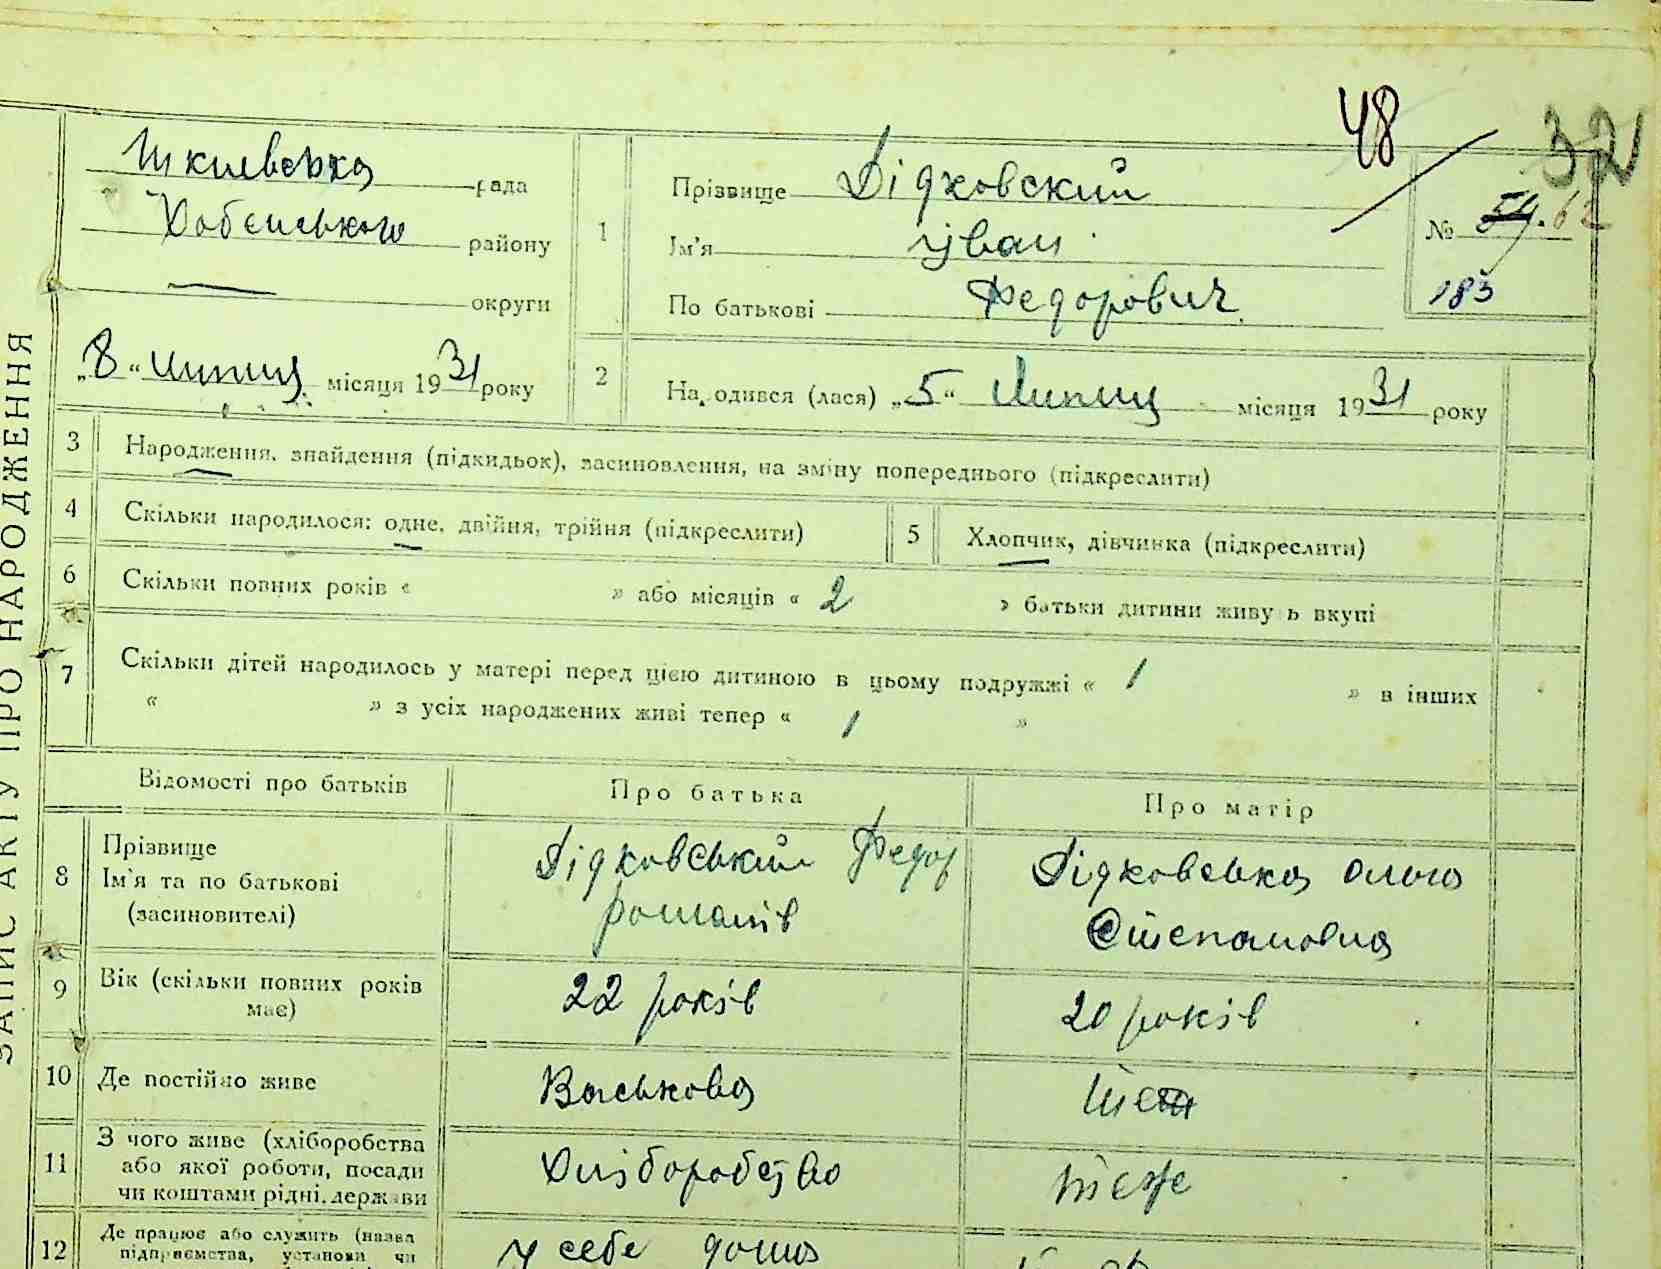 ЗАПИС АКТУ ПРО НАРОДЖЕННЯ
48
32
рада
Хабенського району
округи
„8“ липця місяця 1931 року
1
Прізвище Дідковский
Ім'я іван
По батькові Федорович
№ 54. 62
183
2
Народився (лася) „5“ Липця місяця 1931 року
3 Народження, знайдення (підкидьок), засиновлення, на зміну попереднього (підкреслити)
4 Скільки народилося: одне, двійня, трійня (підкреслити)
5 Хлопчик, дівчинка (підкреслити)
6 Скільки повних років « » або місяців « 2 » батьки дитини живуть вкупі
7 Скільки дітей народилось у матері перед цією дитиною в цьому подружжі « 1 » в інших
« » з усіх народжених живі тепер « 1 »
Відомості про батьків
Про батька
Про матір
8 Прізвище
Ім'я та по батькові
(засиновителі)
Дідковський Федор
романів
Дідковська Ольга
Степановна
9 Вік (скільки повних років
має)
22 років
20 років
10 Де постійно живе
Васькова
теж
11 З чого живе (хліборобства
або якої роботи, посади
чи коштами рідні, держави
Хліборобство
теж
12 Де працює або служить (назва
підприємства, установи чи
у себе дома